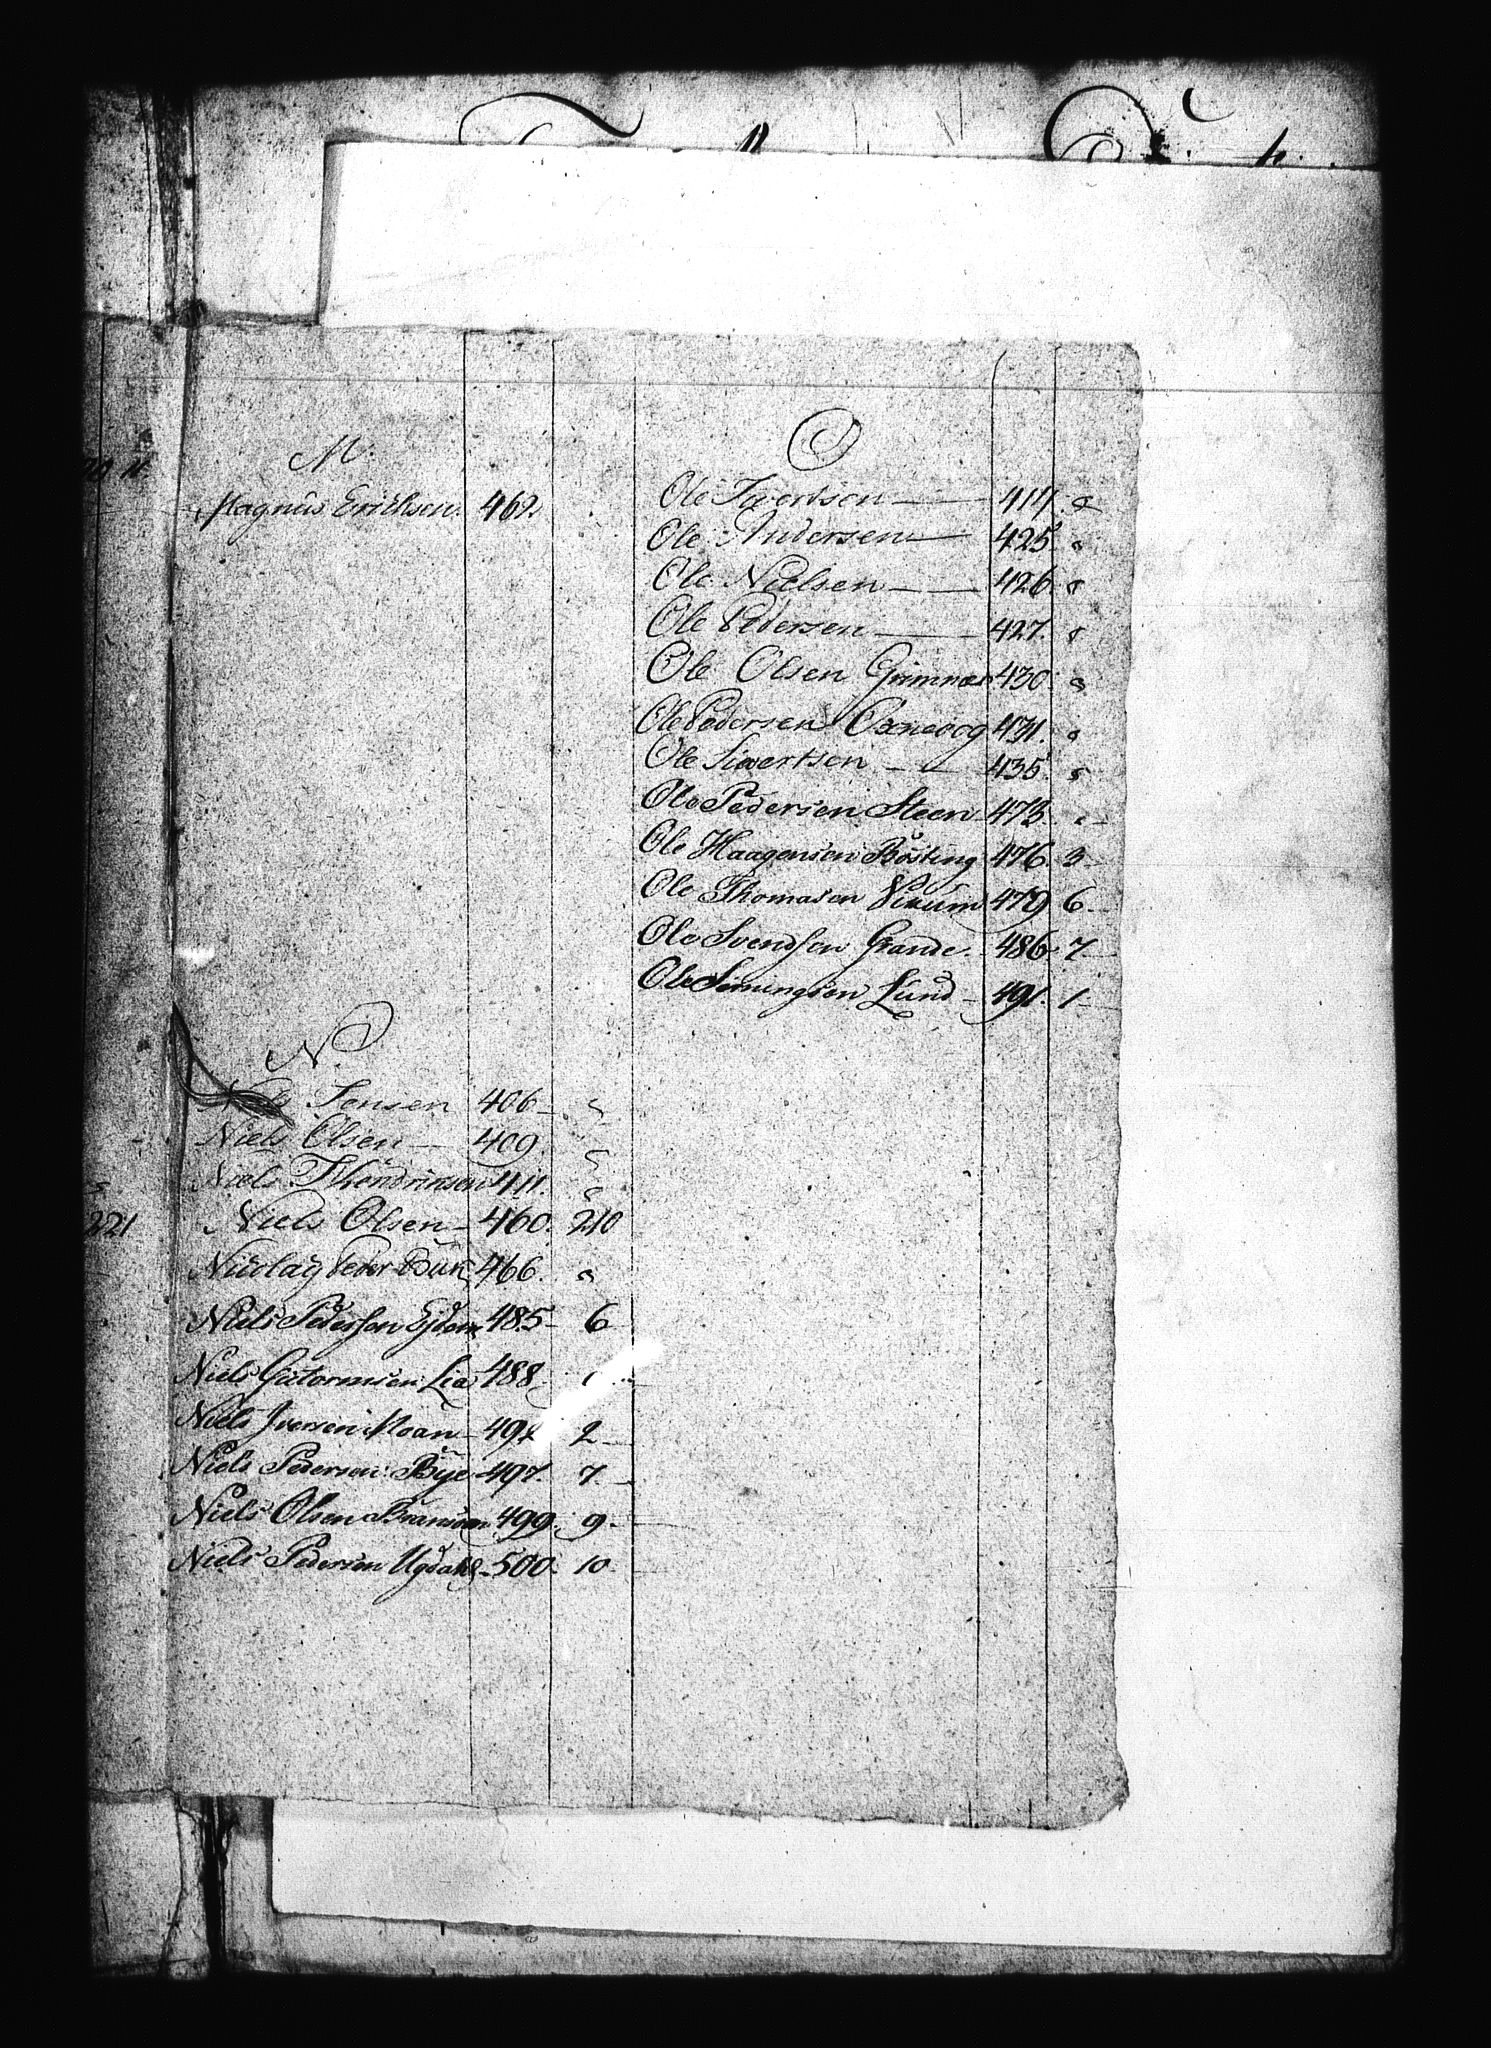 M.
Magnus Erichsen. 462.
N.
Niels Jensen 406 "
Niels Olsen 409. "
Niels Thendrinsen 411. "
Niels Olsen 460. 210
Nicolay Peder 466. "
Niels Pedersen 485 6
Niels Gutormsen Lia 488 1
Niels Iversen Moan 2
Niels Pedersen Bye 497. 7
Niels Olsen 499. 9
Niels Pedersen Ugdahl 500. 10
O
Ole Ivertsen 414. "
Ole Andersen 425. "
Ole Nielsen 426. "
Ole Pedersen 427. "
Ole Olsen Grimnæs 430. "
Ole Pedersen 431. "
Ole Sivertsen 435. "
Ole Pedersen Steen 473. "
Ole Haagensen Rösting 476 3
Ole Thomasen 479 6
Ole Svendsen Grande. 486 7
Ole Lund 491. 1
221